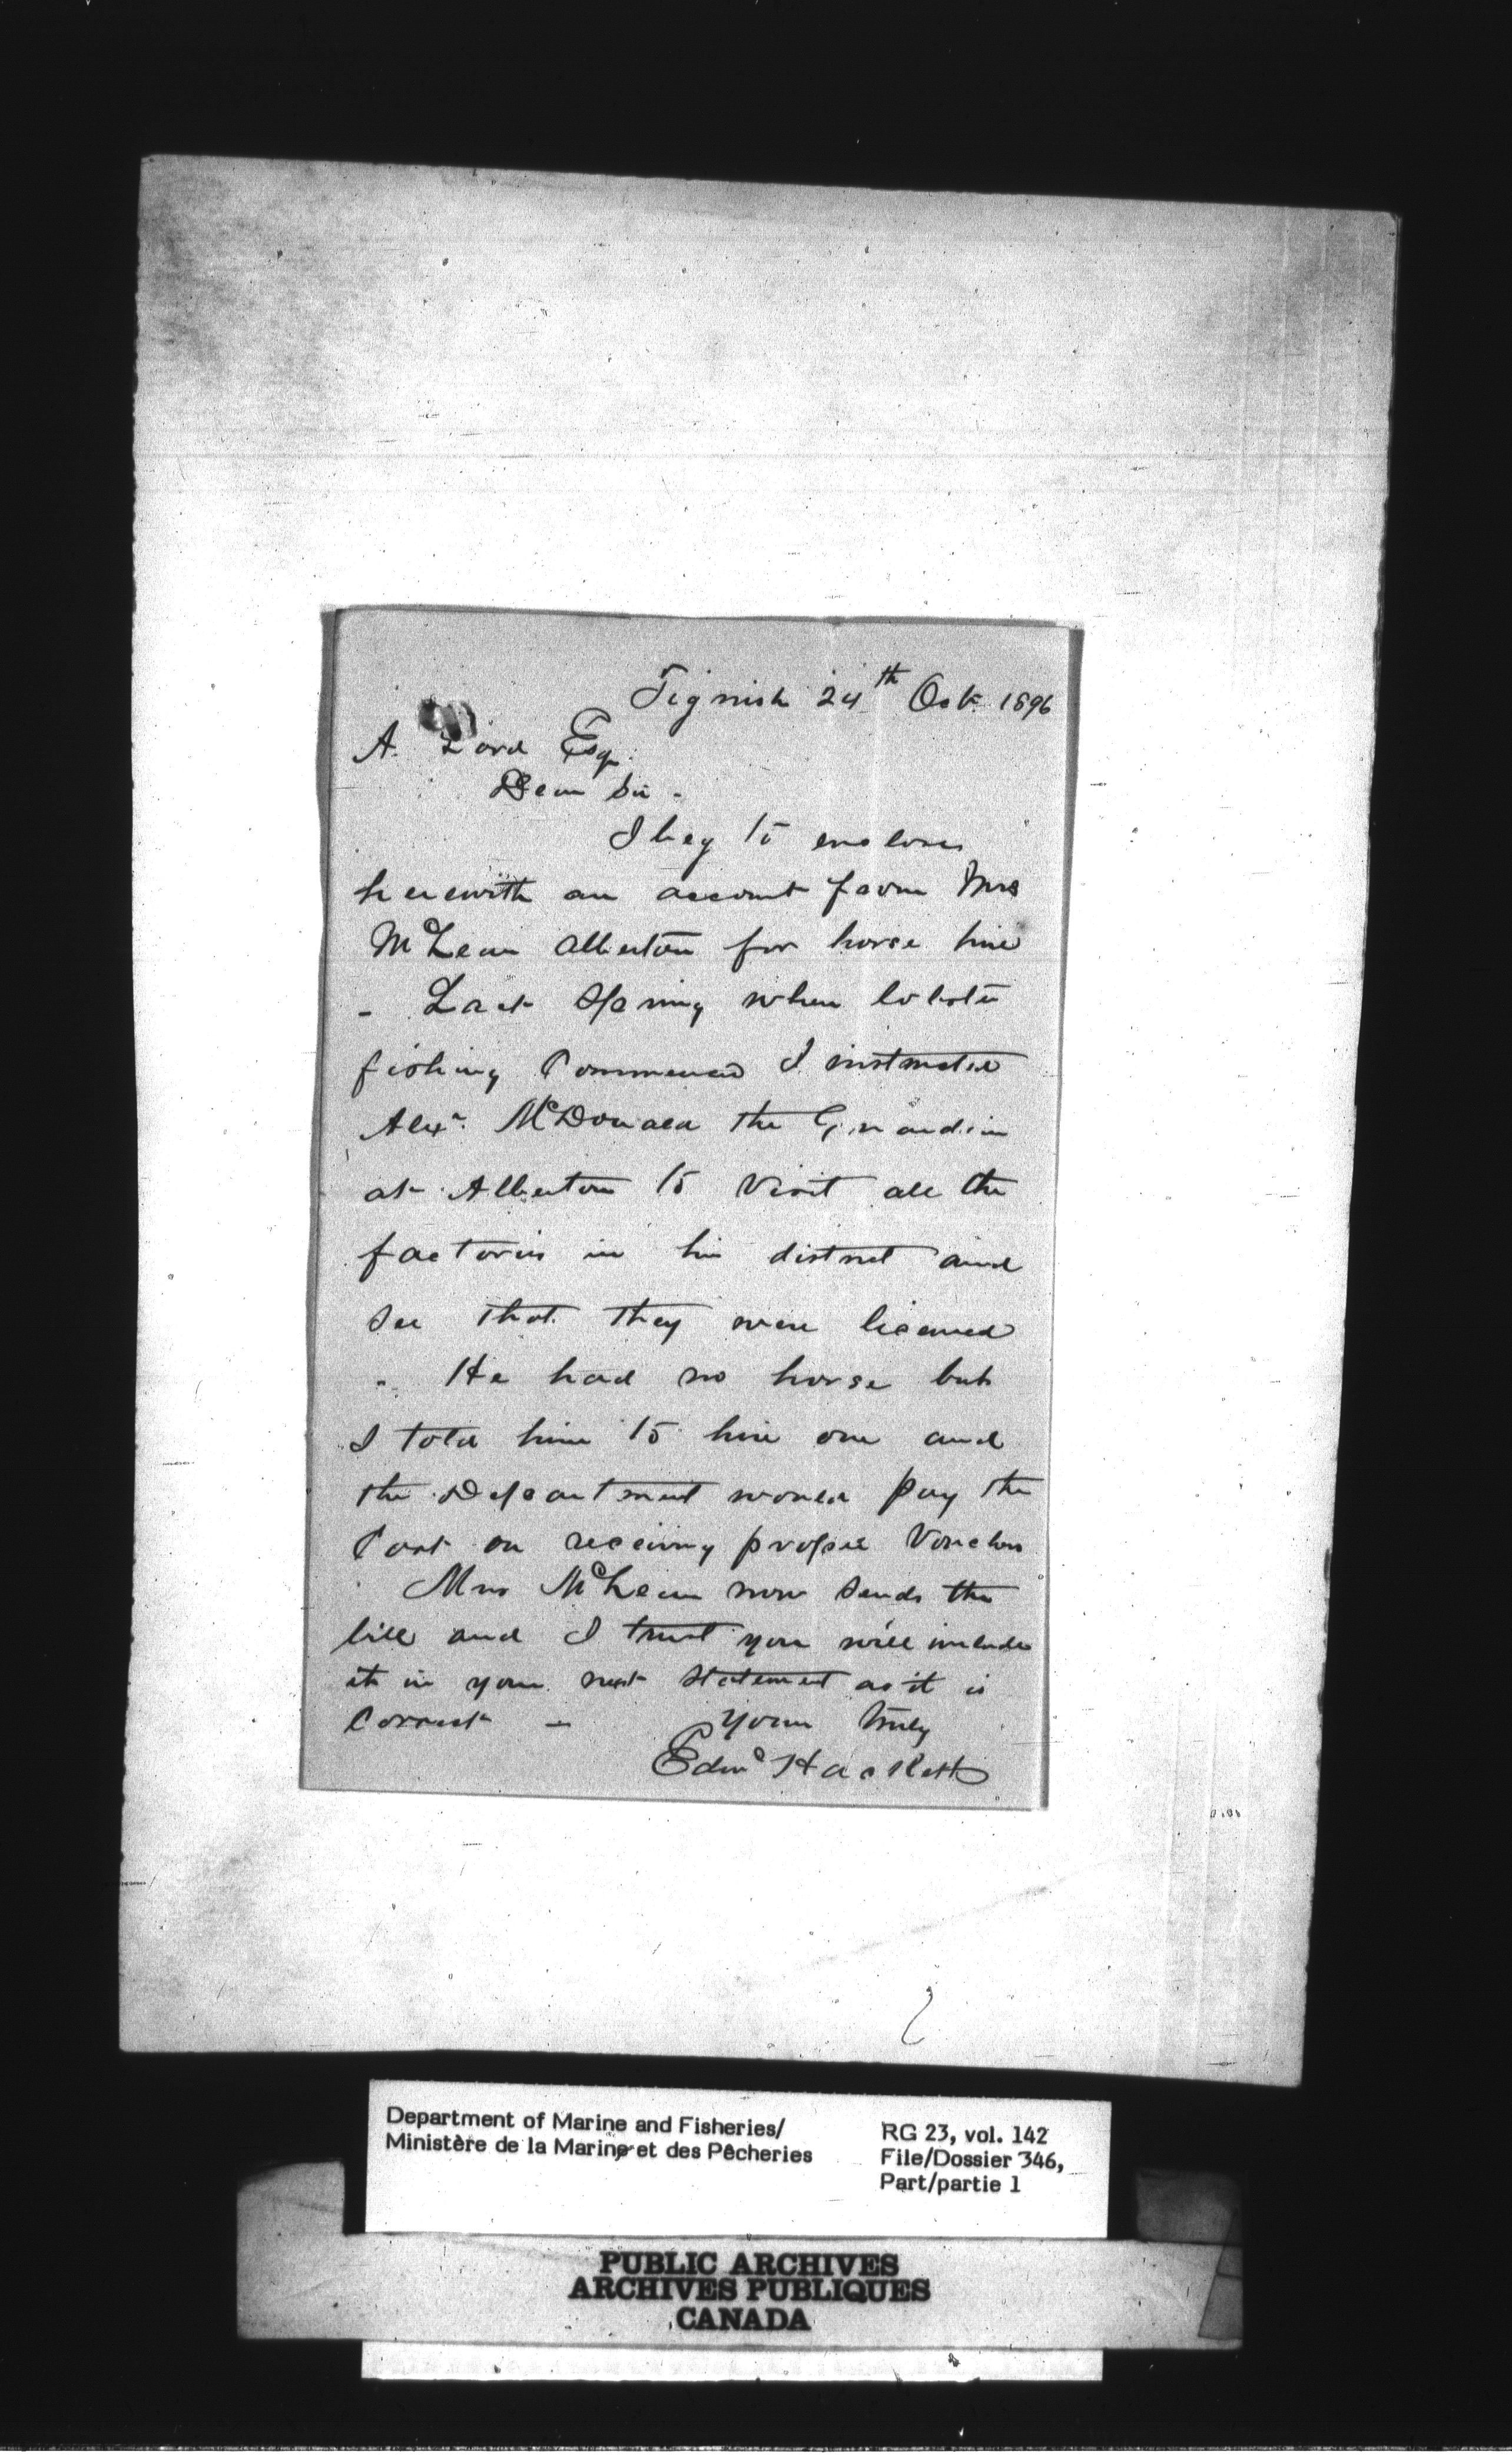 Tignish 24th Oct 1896
A. Lord Esq.
Dear Sir -
I beg to enclose
herewith an account from Mrs
McLean Alberton for horse hire
- Last Spring when lobster
fishing Commenced I instructed
Alexr. McDonald the Guardian
at Alberton to visit all the
factories in his district and
see that they were licensed
- He had no horse but
I told him to hire one and
the Department would pay the
Cost on receiving proper Vouchers
Mrs McLean now sends the
bill and I trust you will include
it in your next statement as it is
Correct - Yours truly
Edwd Hackett
Department of Marine and Fisheries/
Ministère de la Marine et des Pêcheries
RG 23, vol. 142
File/Dossier 346,
Part/partie 1
PUBLIC ARCHIVES
ARCHIVES PUBLIQUES
CANADA